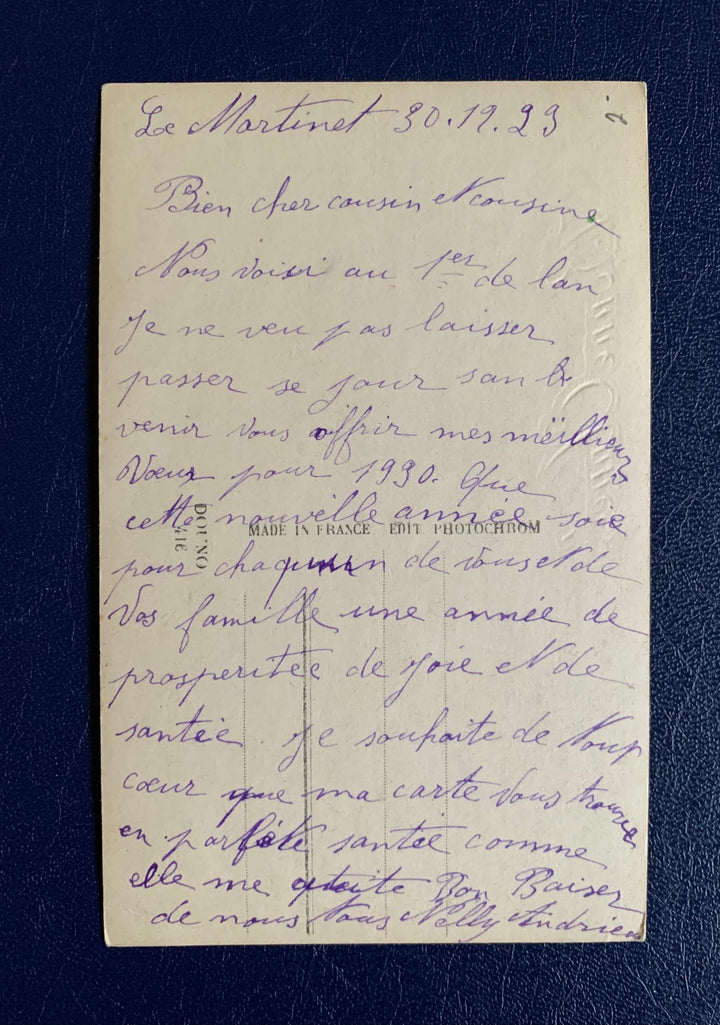 Le Martinet 30.12.29
Bien cher cousin et cousine
Nous voisi au 1er de lan
Je ne veu pas laisser
passer se jour san
venir vous offrir mes meillieurs
Vœux pour 1930. Que
cette nouvelle année soie
MADE IN FRANCE EDIT PHOTOCHROM
DOUNO
416
pour chaquun de vous et de
Vos famille une année de
prosperitée de Joie et de
santée. Je souhaite de tout
cœur que ma carte vous trouve
en parfète santée comme
elle me quite Bon Baiser
de nous tous Nelly Andrieu
Bonne Année